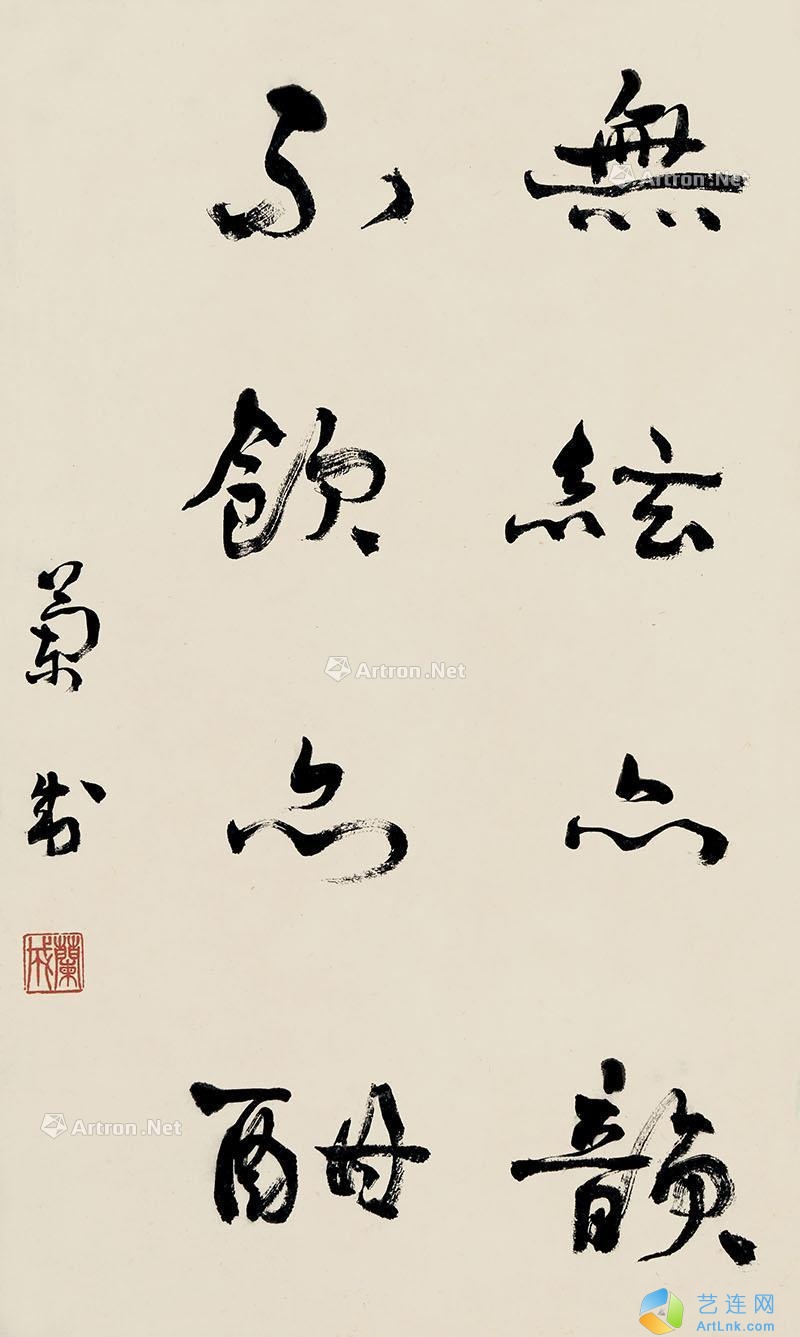 無絃亦韻
不飲亦酣
蘭成
蘭成
Artron.Net
Artron.Net
Artron.Net
艺连网
ArtLnk.com